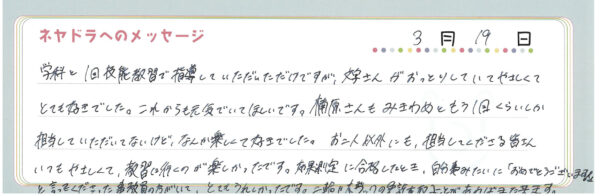 ネヤドラへのメッセージ
3月19日
学科と1回技能教習で指導していただいただけですが、さんがおっとりしていてやさしくて
とても好きでした。これからも元気でいてほしいです。原さんもみきわめともう1回くらいしか
担当していただいてないけど、なんか楽しくて好きでした。お二人以外にも、担当してくださる皆さん
いつもやさしくて、教習に行くのが楽しかったです。効果測定に合格したとき、自分事みたいに「おめでとうございます」
と言ってくださった方がいて、とてもうれしかったです。